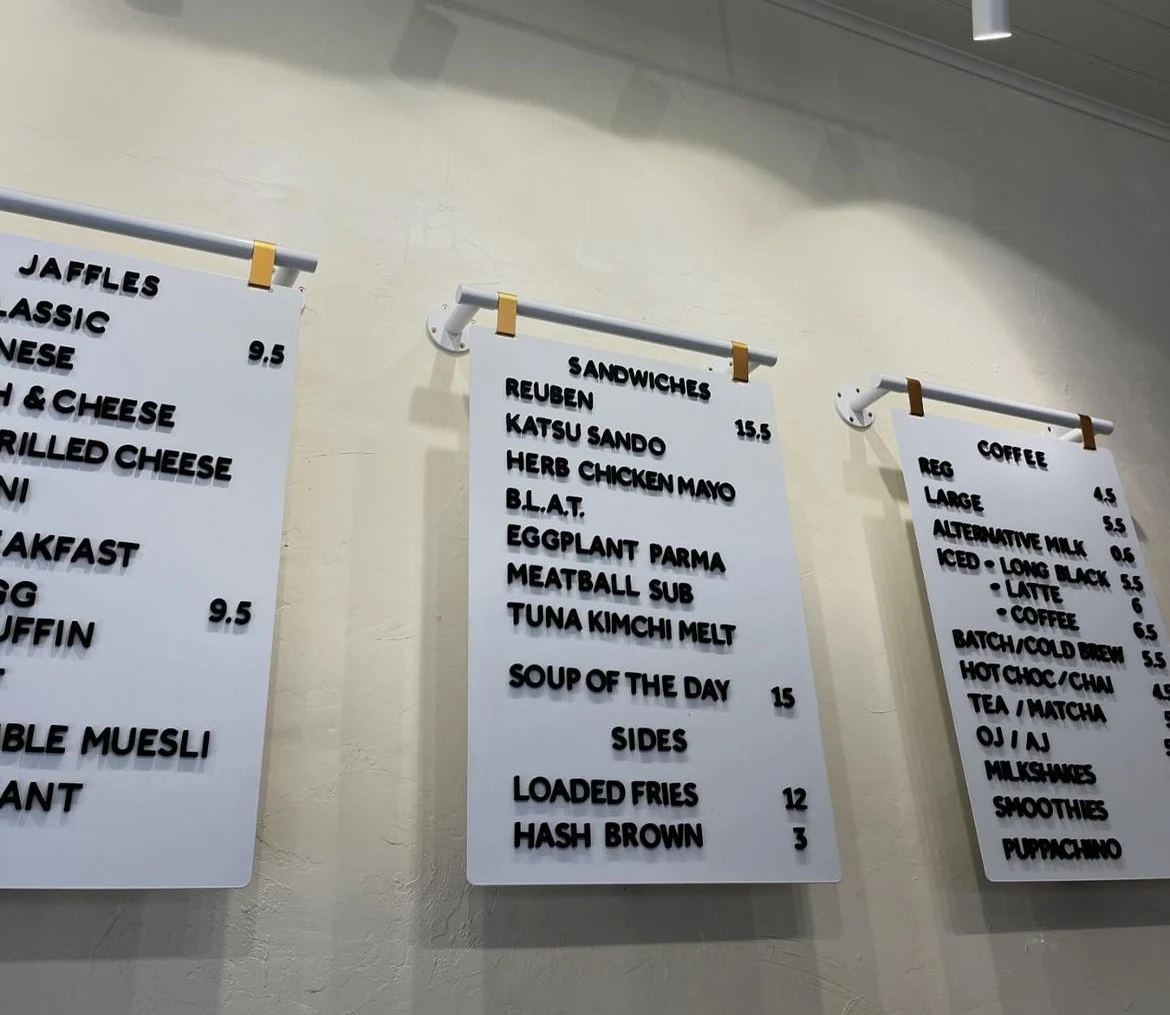 JAFFLES
LASSIC 9.5
NESE
H & CHEESE
RILLED CHEESE
NI
EAKFAST
GG 9.5
UFFIN
IBLE MUESLI
ANT
SANDWICHES
REUBEN 15.5
KATSU SANDO
HERB CHICKEN MAYO
B.L.A.T.
EGGPLANT PARMA
MEATBALL SUB
TUNA KIMCHI MELT
SOUP OF THE DAY 15
SIDES
LOADED FRIES 12
HASH BROWN 3
COFFEE
REG 4.5
LARGE 5.5
ALTERNATIVE MILK 0.6
ICED - LONG BLACK 5.5
- LATTE 6
- COFFEE 6.5
BATCH/COLD BREW 5.5
HOT CHOC/CHAI 4.5
TEA / MATCHA
OJ / AJ
MILKSHAKES
SMOOTHIES
PUPPACHINO